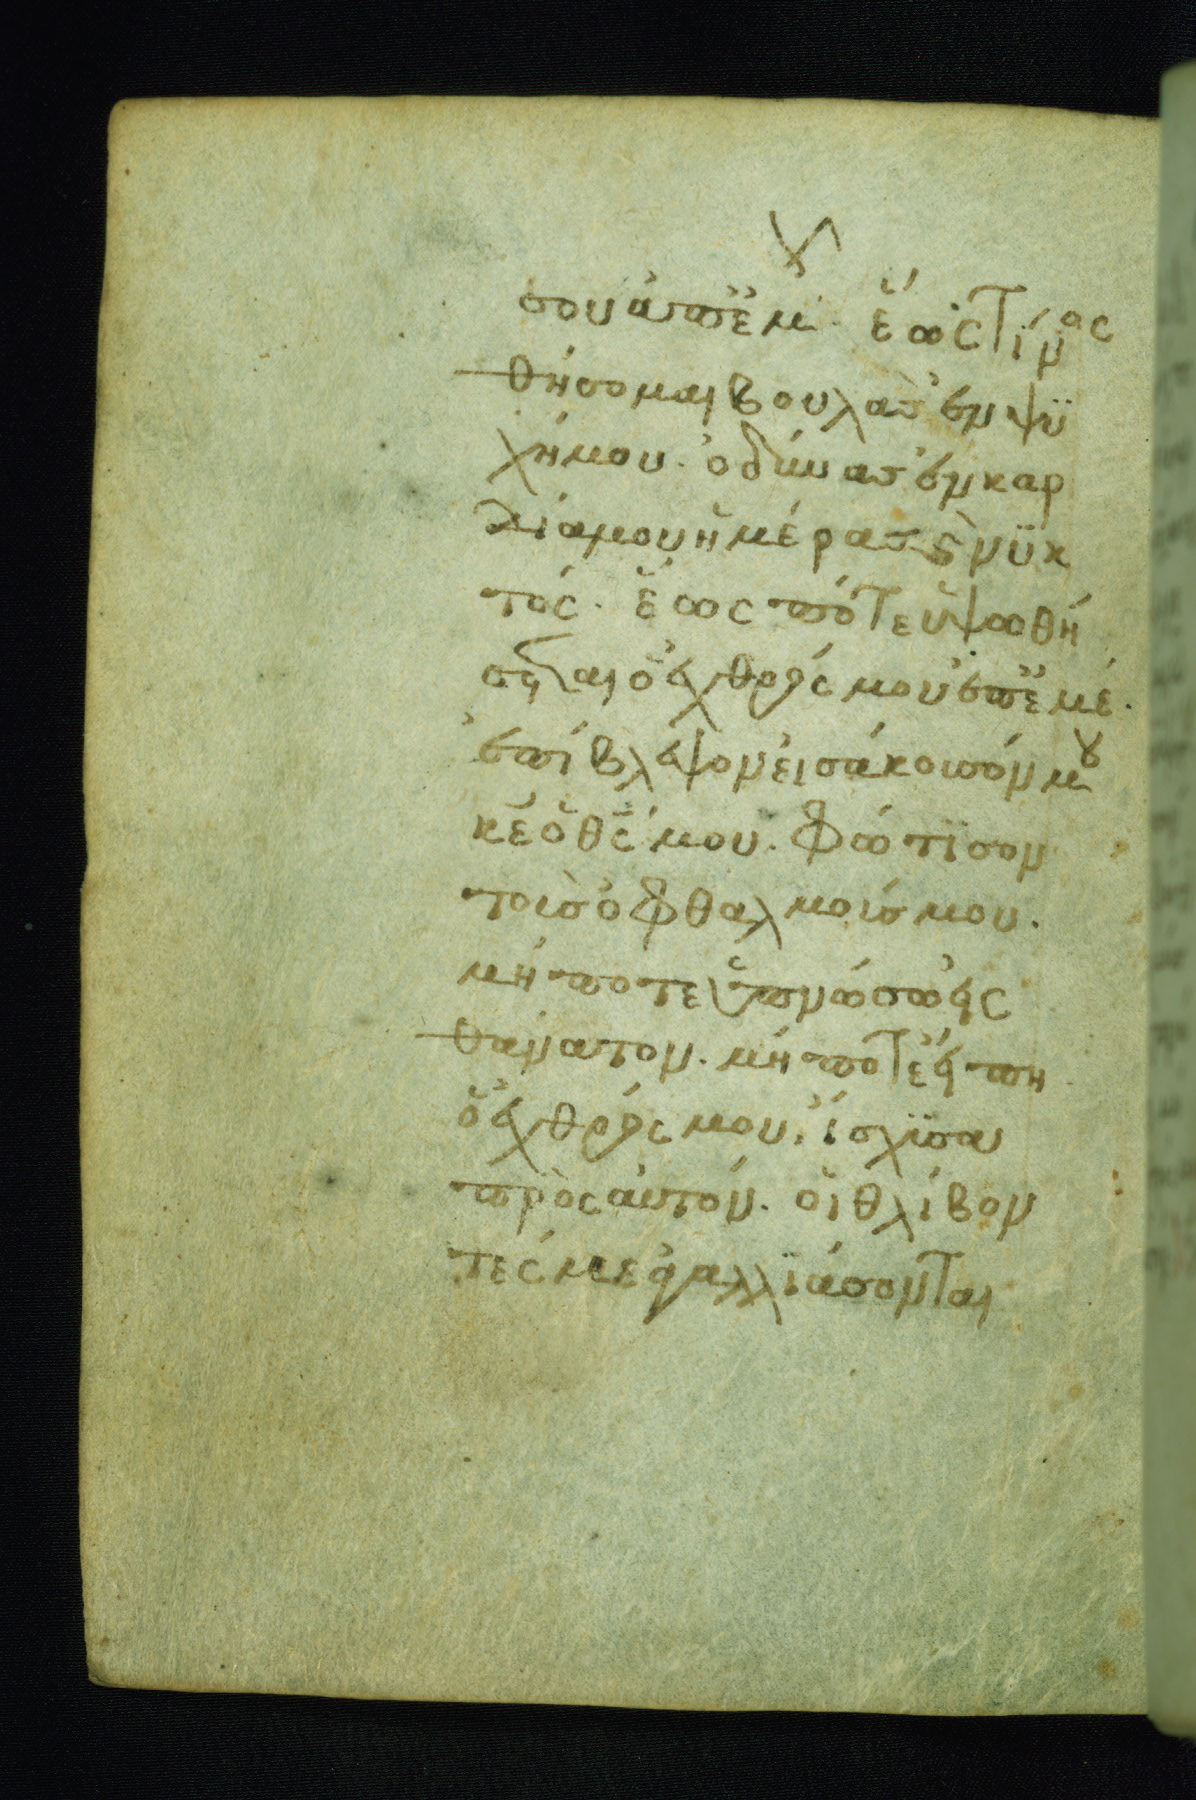 σου ἀπ ἐμ. ἕως τίνος
θήσομαι βουλὰσ ἐν ψϋ
χή μου. ὀδύνασ ἐν καρ
δία μου ἡμέρασ ϗ νϋκ
τός. ἕως πότε ὑψωθή
σεται ὁ ἐχθρός μου ἐπ ἐμέ.
ἐπίβλεψον εἰσάκοισόν μου
κε ὁ θς μου. φώτϊσον
τοισ ὀφθαλμοίσ μου.
μήποτε ὑπνώσω εἰς
θάνατον. μήποτε εἴπη
ὁ ἐχθρός μου. ἴσχϊσα
πρὸς αὐτόν. οἱ θλίβον
τές με ἀγαλλϊάσονται